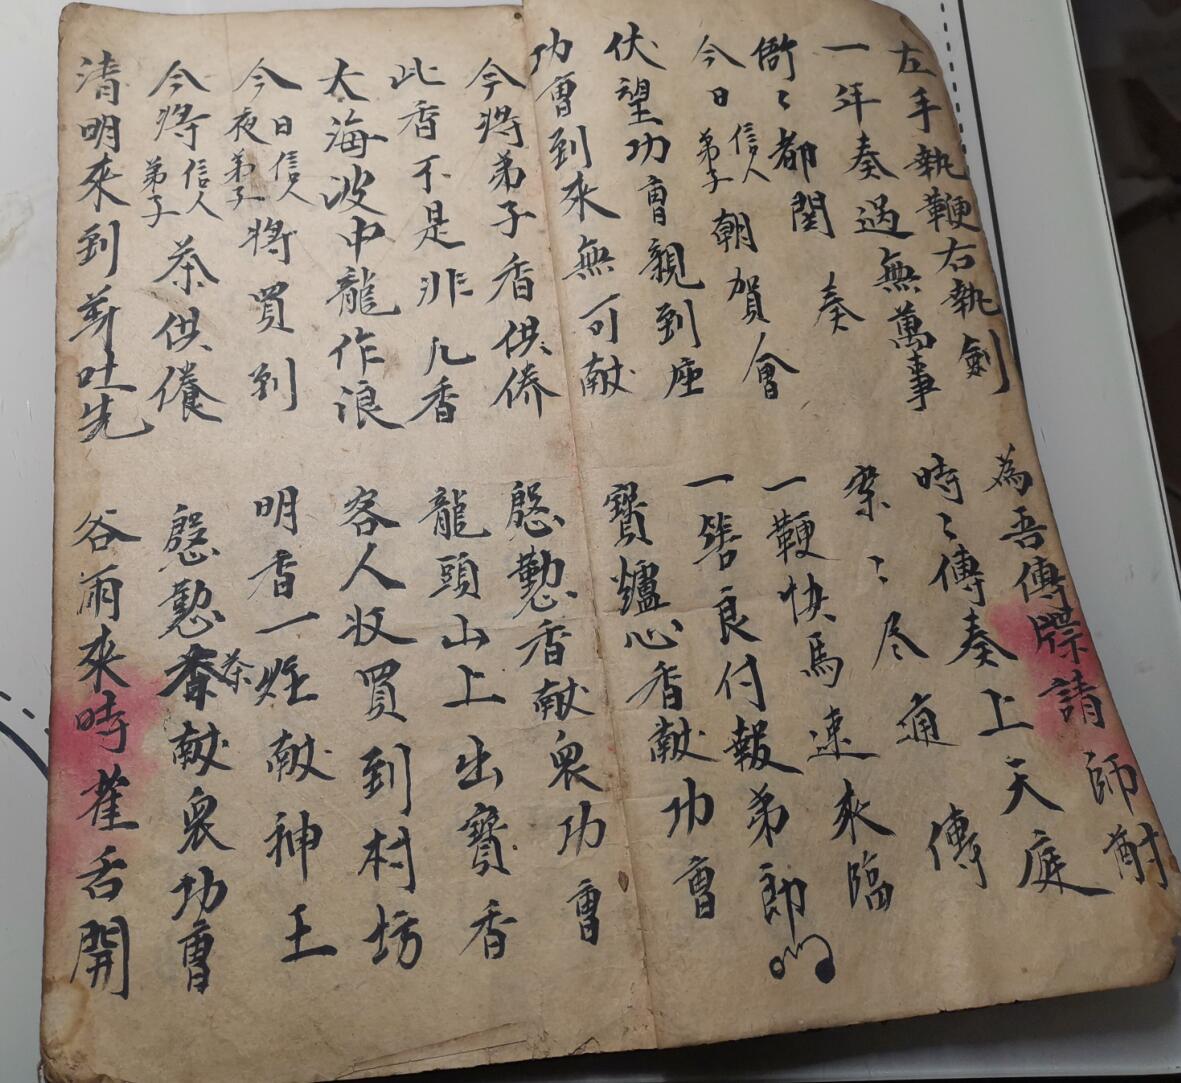 左手執鞭右執劍 為吾傳牒請師尉
一年奏過無萬事 時〻傳奏上天庭
衙〻都関奏 案〻尽通傳
今日信人弟子朝賀會 一鞭快馬速來臨
伏望功曹親到座 一筶良付報弟郎
功曹到來無可献 寶爐心香献功曹
今將弟子香供侨 慇懃香献衆功曹
此香不是非凡香 龍頭山上出寶香
大海波中龍作浪 客人收買到村坊
今日夜信人弟子將買到 明香一炷献神王
今將信人弟子茶供養 慇懃茶献衆功曹
清明來到芽吐先 谷雨來時雀舌開